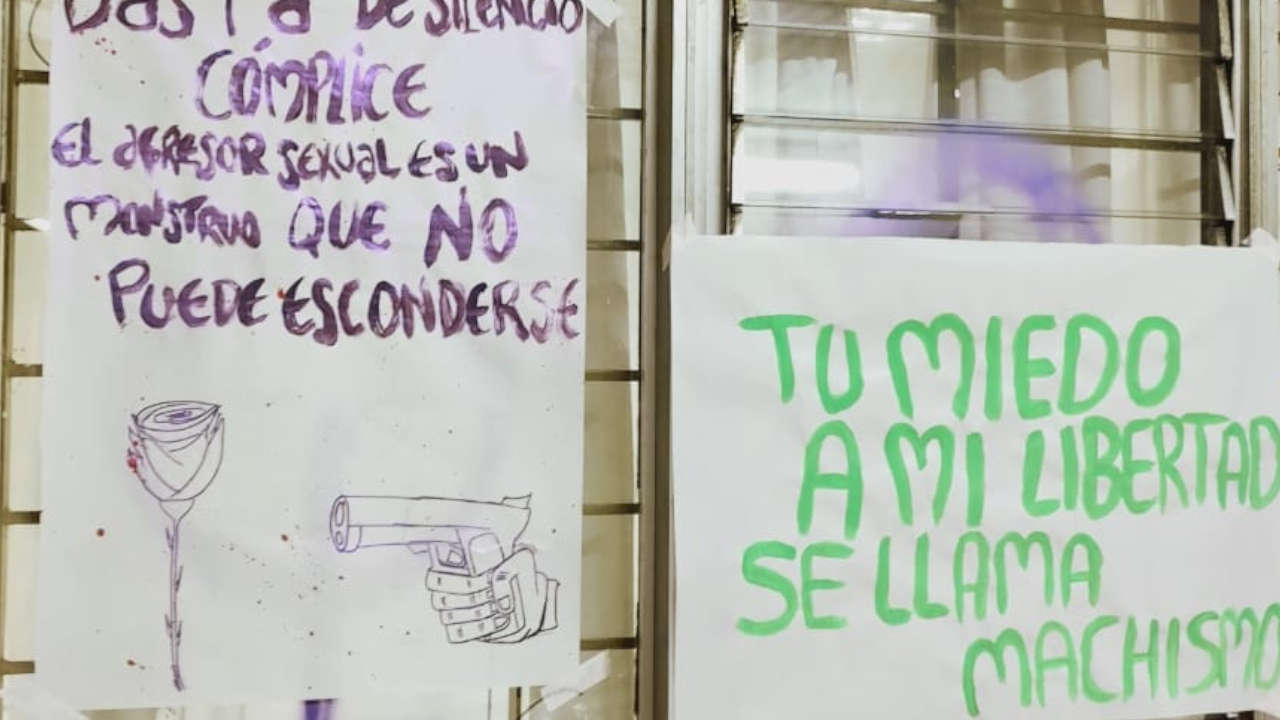 Basta DE SILENCIO
CÓMPLICE
El AGRESOR SEXUAL ES UN
MONSTRUO QUE NO
PUEDE ESCONDERSE
TU MIEDO
A MI LIBERTAD
SE LLAMA
MACHISMO